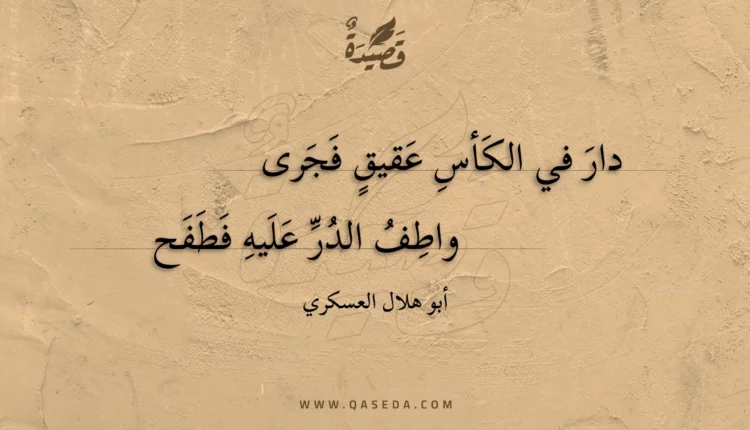 قَصِيْدَةٌ
دارَ في الكَأسِ عَقيقٍ فَجَرى
واطِفُ الدُرِّ عَلَيهِ فَطَفَح
أبو هلال العسكري
WWW.QASEDA.COM